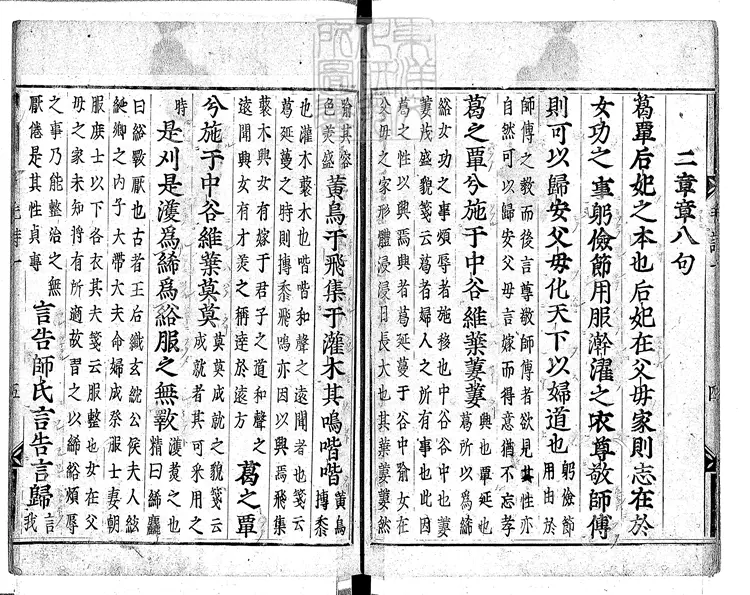 二章章八句
葛覃后妃之本也后妃在父母家則志在於
女功之事躬儉節用服澣濯之衣尊敬師傅
則可以歸安父母化天下以婦道也躬儉節
用由於
師傅之教而後言尊敬師傅者欲見其性亦
自然可以歸安父母言嫁而得意猶不忘孝
葛之覃兮施于中谷維葉萋萋興也覃延也
葛所以為絺
綌女功之事煩辱者施移也中谷谷中也萋
萋茂盛貌箋云葛者婦人之所有事也此因
葛之性以興焉興者葛延蔓于谷中喻女在
父母之家形體浸浸日長大也其葉萋萋然
喻其容
色美盛黃鳥于飛集于灌木其鳴喈喈黃鳥
摶黍
也灌木藂木也喈喈和聲之遠聞者也箋云
葛延蔓之時則摶黍飛鳴亦因以興焉飛集
藂木興女有嫁于君子之道和聲之
遠聞興女有才美之稱達於遠方葛之覃
兮施于中谷維葉莫莫莫莫成就之貌箋云
成就者其可采用之
時是刈是濩爲絺爲綌服之無斁濩煑之也
精曰絺麤
曰綌斁厭也古者王后織玄紞公侯夫人紘
綖卿之内子大帶大夫命婦成祭服士妻朝
服庶士以下各衣其夫箋云服整也女在父
母之家未知將有所適故習之以絺綌煩辱
之事乃能整治之無
厭倦是其性貞專言告師氏言告言歸言
我